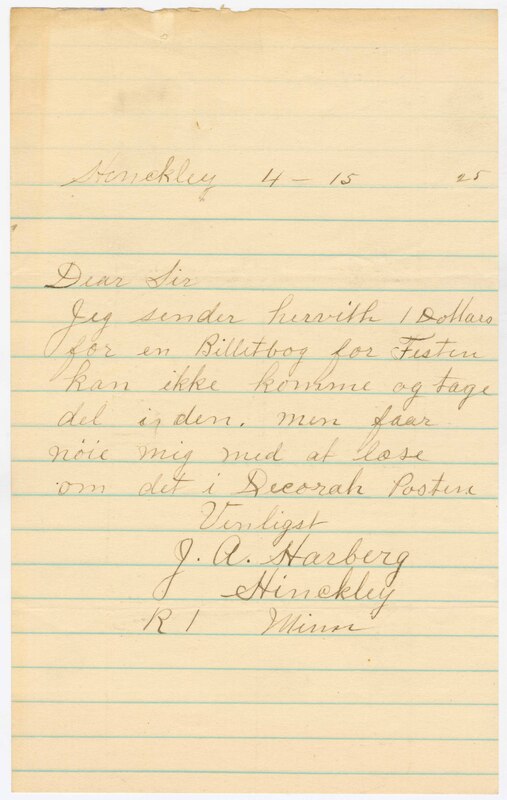 Hinckley 4 - 15 25
Dear Sir
Jeg sender hervith 1 Dollars
for en Billetbog for Festen
kan ikke komme og tage
del i den. men faar
nöie mig med at læse
om det i Decorah Posten
Venligst
J. A. Harberg
Hinckley
R 1 Minn